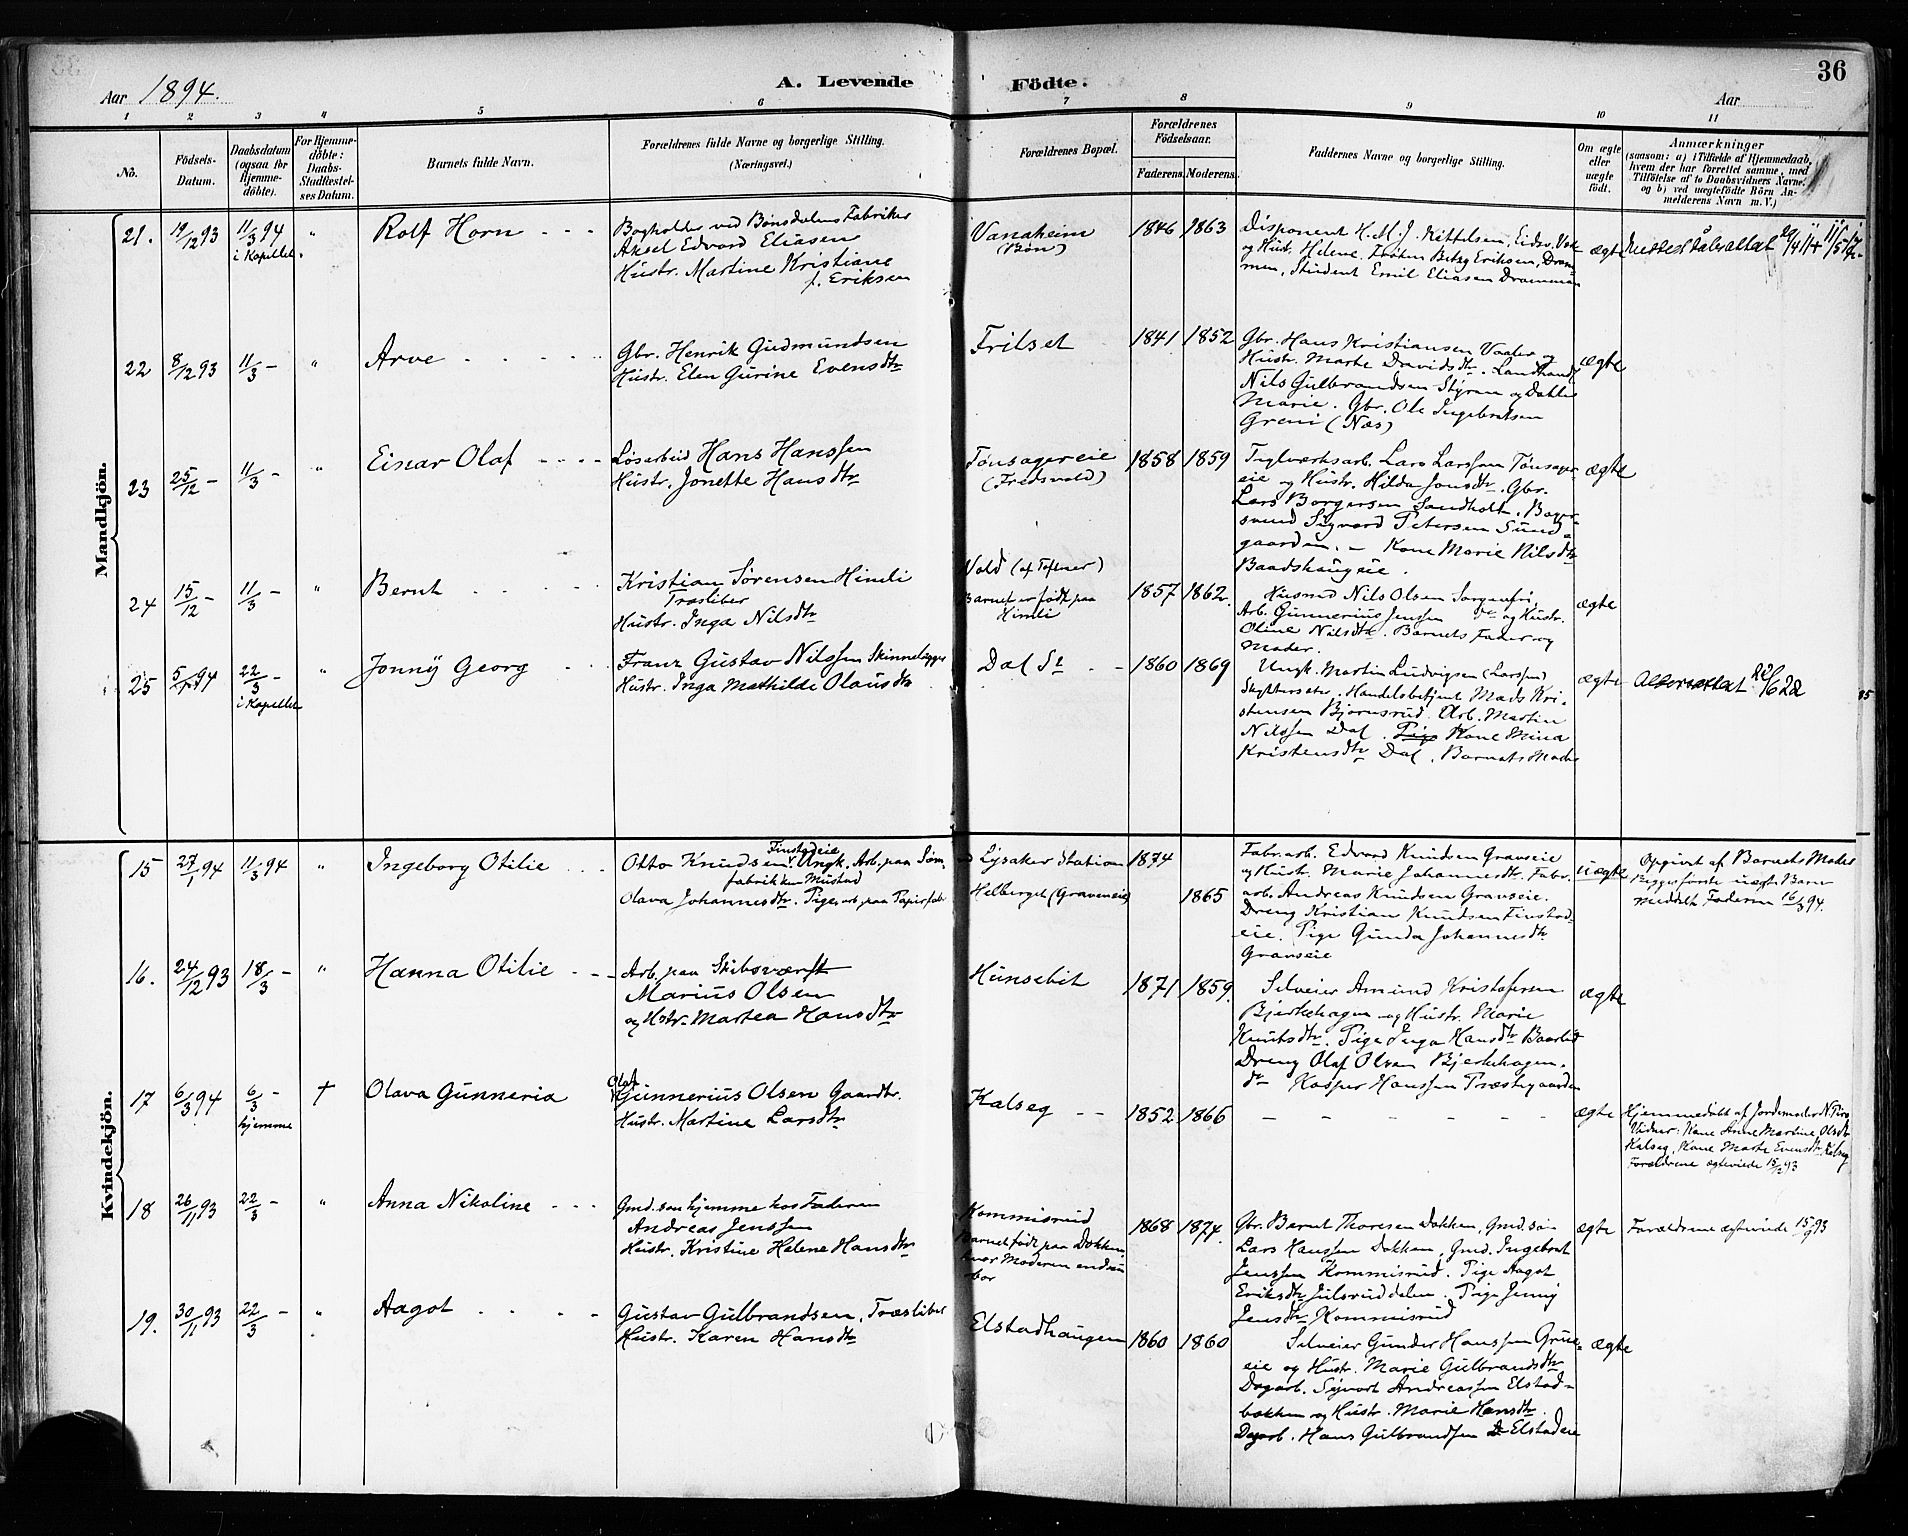 36
Aar 1894. A. Levende Födte. Aar
1 2 3 4 5 6 7 8 9 10 11
No. Födsels-Datum. Daabsdatum (ogsaa for Hjemmedöbte). For Hjemmedöbte: Daabs-Stadfæstelses Datum. Barnets fulde Navn. Forældrenes fulde Navne og borgerlige Stilling. (Næringsvei.) Forældrenes Bopæl. Forældrenes Födselsaar. Faderens. Moderens. Faddernes Navne og borgerlige Stilling. Om ægte eller uægte födt. Anmærkninger (saasom: a) i Tilfælde af Hjemmedaab, hvem der har forrettet samme, med Tilföielse af to Daabsvidners Navne; og b) ved uægtefödte Börn Anmelderens Navn m. V.)
Mandkjön.
21. 19/12 93 11/3 94 i Kapellet " Rolf Horn
Bogholder ved Bönsdalens Fabriker
Aksel Edvard Eliasen
Hustr. Martine Kristiane
f. Eriksen
Vanaheim
(Bön)
1846 1863
Disponent H. M. J. Kittelsen, Eidsv. Værk
og Hust. Helene. Fröken Betzy Eriksen, Dram-
men, Student Emil Eliasen Drammen
ægte
22 8/12 93 11/3 - " Arve
Gbr. Henrik Gudmundsen
Hustr. Elen Gurine Evensdtr
Frilset
1841 1852
Gbr. Hans Kristiansen Vaaler og
Hustr. Marte Davidsdtr. Landhandl.
Nils Gulbrandsen Styren og Datter
Marie. Gbr. Ole Ingebretsen
Greni (Næs)
ægte
23 25/12 - 11/3 - " Einar Olaf
Lösarbeid Hans Hanssen
Hustr. Jonette Hansdtr
Tönsagereie
(Fredsvold)
1858 1859
Teglværksarb. Lars Larssen Tönsager-
eie og Hustr. Hilda Jonsdtr. Gbr.
Lars Borgersen Sandholt. Bager-
svend Sigvard Petersen Sund-
gaarden. - Kone Marie Nilsdtr
Baadshaugeie.
ægte
24 15/12 - 11/3 - " Bernt
Kristian Sörensen Himli
Træsliber
Hustr. Inga Nilsdtr
Vold (af Tofner)
Barnet er födt paa
Himli
1857 1862.
Husmd Nils Olsen Sorgenfri,
Arb. Gunnerius Jensen do og Hustr.
Oline Nilsdtr. Barnets Fader og
Moder.
ægte
25 5/1 94 22/3 - i Kapellet " Jonny Georg
Franz Gustav Nilssen Skinnelægger
Hustr. Inga Mathilde Olausdtr
Dal St
1860 1869
Ungk. Martin Ludvigsen (Larssen)
Skytterseter. Handelsbetjent Mads Kri-
stensen Bjornsrud. Arb. Martin
Nilssen Dal. Pige Kone Mina
Kristensdtr Dal. Barnets Moder
ægte
Kvindekjön.
15 27/1 94 11/3 94 " Ingeborg Otilie
Finstadeie
Otto Knudsen Ungk. Arb. paa Söm-
fabrikken Mustad
Olava Johannesdtr. Pige, arb. paa Papirfabr.
Lysaker Station
Helberget (Graveneie)
1874
1865
Fabr. arb. Edvard Knudsen Gravseie
og Hustr. Marie Johannesdtr. Fabr.
arb. Andreas Knudsen Gravseie.
Dreng Kristian Knudsen Finstad-
eie. Pige Gunda Johannesdtr.
Gravseie
uægte
Opgivet af Barnets Moder
Begges förste uægte Barn
meddelt Faderen 16/3 94.
16. 24/12 93 18/3 - " Hanna Otilie
Arb. paa Skibsværft
Marius Olsen
og Hstr. Martea Hansdtr
Hunsebit
1871 1859.
Selveier Amund Kristofersen
Bjerkehagen og Hustr. Marie
Knutsdtr. Pige Inga Hansdtr Baarlid
Dreng Olaf Olsen Bjerkehagen.
do Kasper Hanssen Præstegaarden
ægte
17 6/3 94 6/3 - hjemme † Olava Gunneria
Olaf
Gunnerius Olsen Gaardbr.
Hustr. Martine Larsdtr
Kalseg
1852 1866
- - - - -
ægte
Hjemmedöbt af Jordemoder N. Piro
Vidner: Kone Anne Martine Olsdtr
Kalseg, Kone Marte Evensdtr, Kalseg
Forældrene ægteviede 15/12 93
18 26/11 93 22/3 - " Anna Nikoline
Gmd. sön hjemme hos Faderen
Andreas Jenssen
Hustr. Kristine Helene Hansdtr
Kommisrud
Barnet födt paa Dokken,
hvor Moderen endnu
bor
1868 1874.
Gbr. Bernt Thoresen Dokken, Gmd. sön
Lars Hanssen Dokken, Gmd. Ingebret
Jenssen Kommisrud. Pige Aagot
Eriksdtr Julsruddalen. Pige Jenny
Jensdtr Kommisrud
ægte
Forældrene ægteviede 15/9 93
19. 30/11 93 22/3 - " Aagot
Gustav Gulbrandsen, Træsliber
Hustr. Karen Hansdtr
Elstadhaugen
1860 1860
Selveier Gunder Hanssen Grue-
eie og Hustr. Marie Gulbrandsdtr
Dagarb. Syvert Andreassen Elstad-
bakken og Hustr. Marie Hansdtr.
Dagarb. Hans Gulbrandsen Elstadeie
ægte